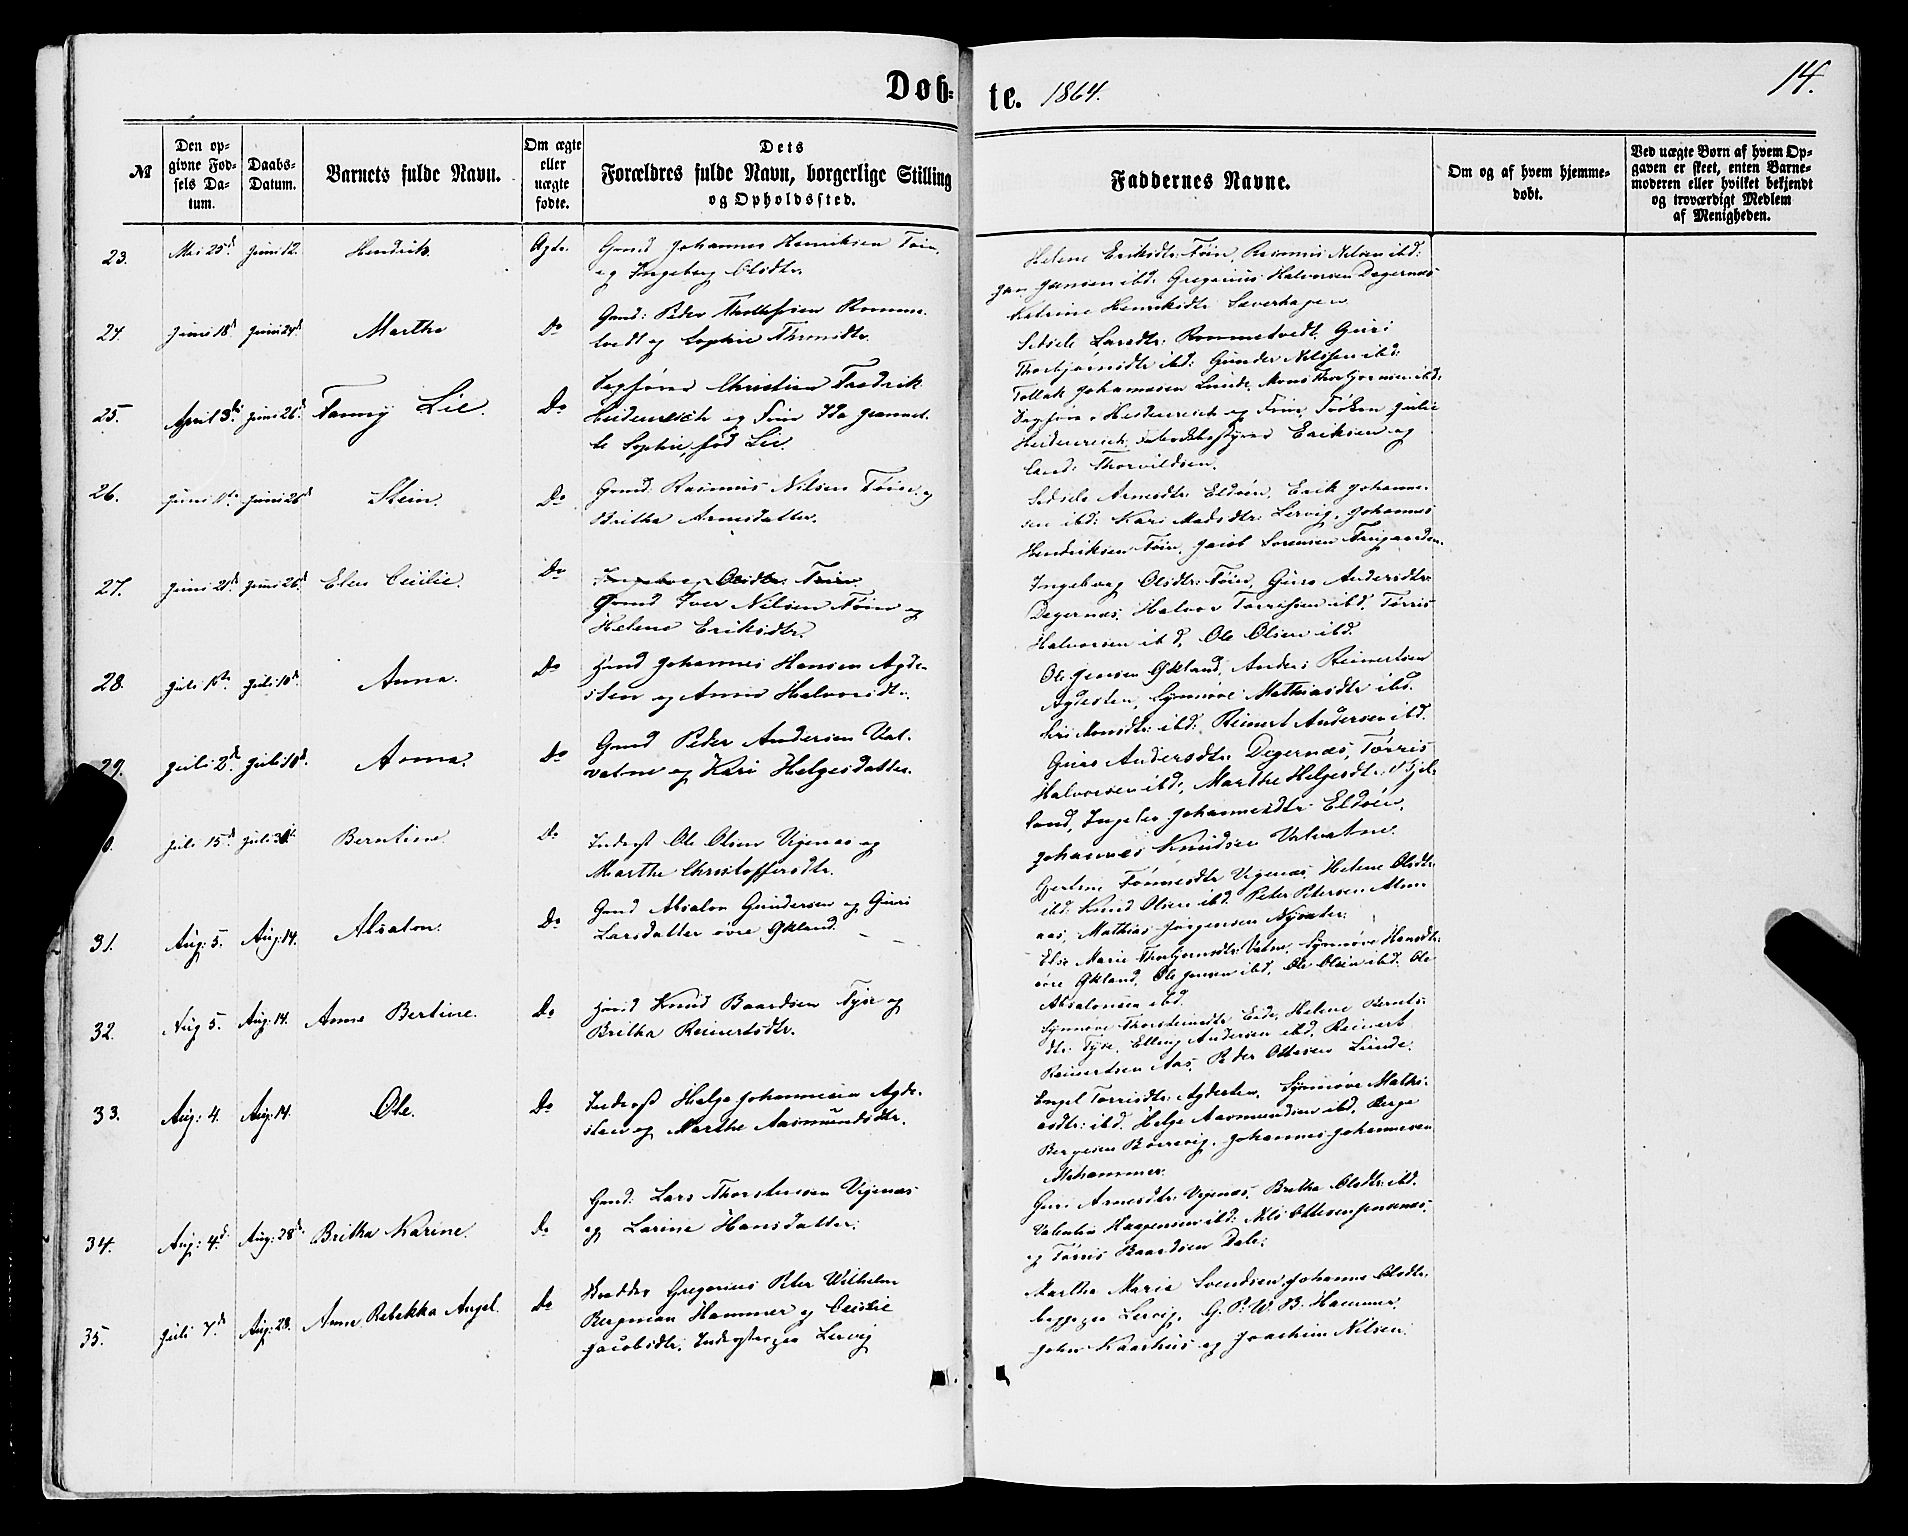 Døb-
te. 1864.
14.
№
Den op-
givne Fød-
sels Da-
tum.
Daabs-
Datum.
Barnets fulde Navn.
Om ægte
eller
uægte
fødte.
Dets
Forældres fulde Navn, borgerlige Stilling
og Opholdssted.
Faddernes Navne.
Om og af hvem hjemme-
døbt.
Ved uægte Børn af hvem Op-
gaven er skeet, enten Barne-
moderen eller hvilket bekjendt
og troværdigt Medlem
af Menigheden.
23. Mai 25d Juni 12. Hendrik. Ægte.
Gmd Johannes Henriksen Tøin,
og Ingeborg Olsdtr.
Helene Eriksdtr: Tøin, Rasmus Nilsen ibd:
Jan Jansen ibd: Gregorius Halvorsen Degernæs
Katrine Henriksdtr: Sæverhagen
24. Juni 18d Juni 24d. Marthe Do
Gmd: Peder Thollefsen Romme-
tvedt og Sophie
Sidsele Larsdtr: Rommetvedt, Guri
Thorbjørnsdtr ibd: Gunder Nilssen ibd:
Tollak Johannesen Lunde, Mons Thorbjørnsen ibd:
25. April 3di Juni 26d Fanny Lie. Do
Sagfører Christian Fredrik
Heidenreich og Frue Ida Jeannet-
te Sophie, fød Lie.
Sagfører Heidenreich og Frue, Frøken Julie
Heidenreich, Eriksen og
Cand: Thorvildsen.
26. Juni 11te Juni 26d Stein. Do
Gmd: Rasmus Nilsen Tøin og
Britha Arnesdatter.
Sidsele Arnesdtr: Eldøen, Erik Johanne-
sen ibd: Kari Madsdtr: Lervig, Johannes
Hendriksen Tøin, Jacob Sørensen
27. Juni 21d Juni 26d. Elen Cecilie. Do
Ingeborg Olsdtr. Tøin
Gmd Iver Nilsen Tøin og
Helene Eriksdtr.
Ingeborg Olsdtr: Tøin, Guro Andersdtr:
Degernæs, Halvor Torrissen ibd, Tørris
Halvorsen ibd, Ole Olsen ibd.
28. Juli 1ste Juli 10d. Anna. Do
Hmd Johannes Hansen Agde-
sten og Anne Halvorsdtr.
Ole Jensen Økland, Anders Reinertsen
Agdesten, Synnøve Mathiasdtr ibd.
Siri Monsdtr: ibd: Reinert Andersen ibd.
29. Juli 2d. Juli 10d. Anna. Do
Gmd Peder Andersen Val-
vatne og Kari Helgesdatter.
Guro Andersdtr: Degernæs, Tørris
Halvorsen ibd, Marthe Helgesdtr:
land, Ingeler Johannesdtr: Eldøen,
Johannes Knudsen Valvatne.
0. Juli 15d Juli 31d. Berntine. Do
Inderst Ole Olsen Vigenæs og
Marthe Christoffersdtr.
Gjertine Tønnesdtr Vigenæs, Helene Olsdtr:
ibd: Knud Olsen ibd. Peter Petersen Alm-
aas, Mathias Jørgensen
31. Aug: 5. Aug: 14. Absalon. Do
Gmd Absalon Gundersen og Guri
Larsdatter øvre Økland.
Else Marie Thorbjørnsdtr: Vatne, Synnøve Hansdtr:
øvre Økland, Ole Jensen ibd, Ole Olsen ibd. Ole
Absalonsen ibd.
32. Aug 5. Aug: 14. Anne Bertine. Do
Hmd Knud Baardsen Tyse og
Britha Reinertsdtr.
Synnøve Thorsteinsdtr Eide, Helene Bernts-
dtr: Tyse, Elling Andersen ibd, Reinert
Reinertsen Aas, Peder Ottesen Lunde.
33. Aug: 4. Aug: 14. Ole. Do
Inderst Helge Johannesen Agde-
sten og Marthe Aasmundsdtr.
Engel Tørrisdtr: Agdesten, Synnøve Mathi-
asdtr: ibd. Helge Aasmundsen ibd, Berge
Bergesen Børrevig, Johannes Johannesen
Mehammer.
34. Aug: 4d. Aug: 28d. Britha Karine. do
Gmd: Lars Thorstensen Vigenæs
og Larine Hansdatter.
Guri Arnesdtr: Vigenæs, Britha Olsdtr: ibd.
Valentin Haagensen ibd: Nils Ottesen
og Tørris Baardsen Dale.
35. Juli 7d Aug: 28. Anne Rebekka Angel. do
Gregorius Peter Wilhelm
Bergman Hammer og Cecilie
Jacobsdtr. Inderster paa Lervig
Marthe Marie Svendsen, Johanne Olsdtr:
begge paa Lervig, G. P. W. B. Hammer,
John Kaarhus og Joachim Nilsen.